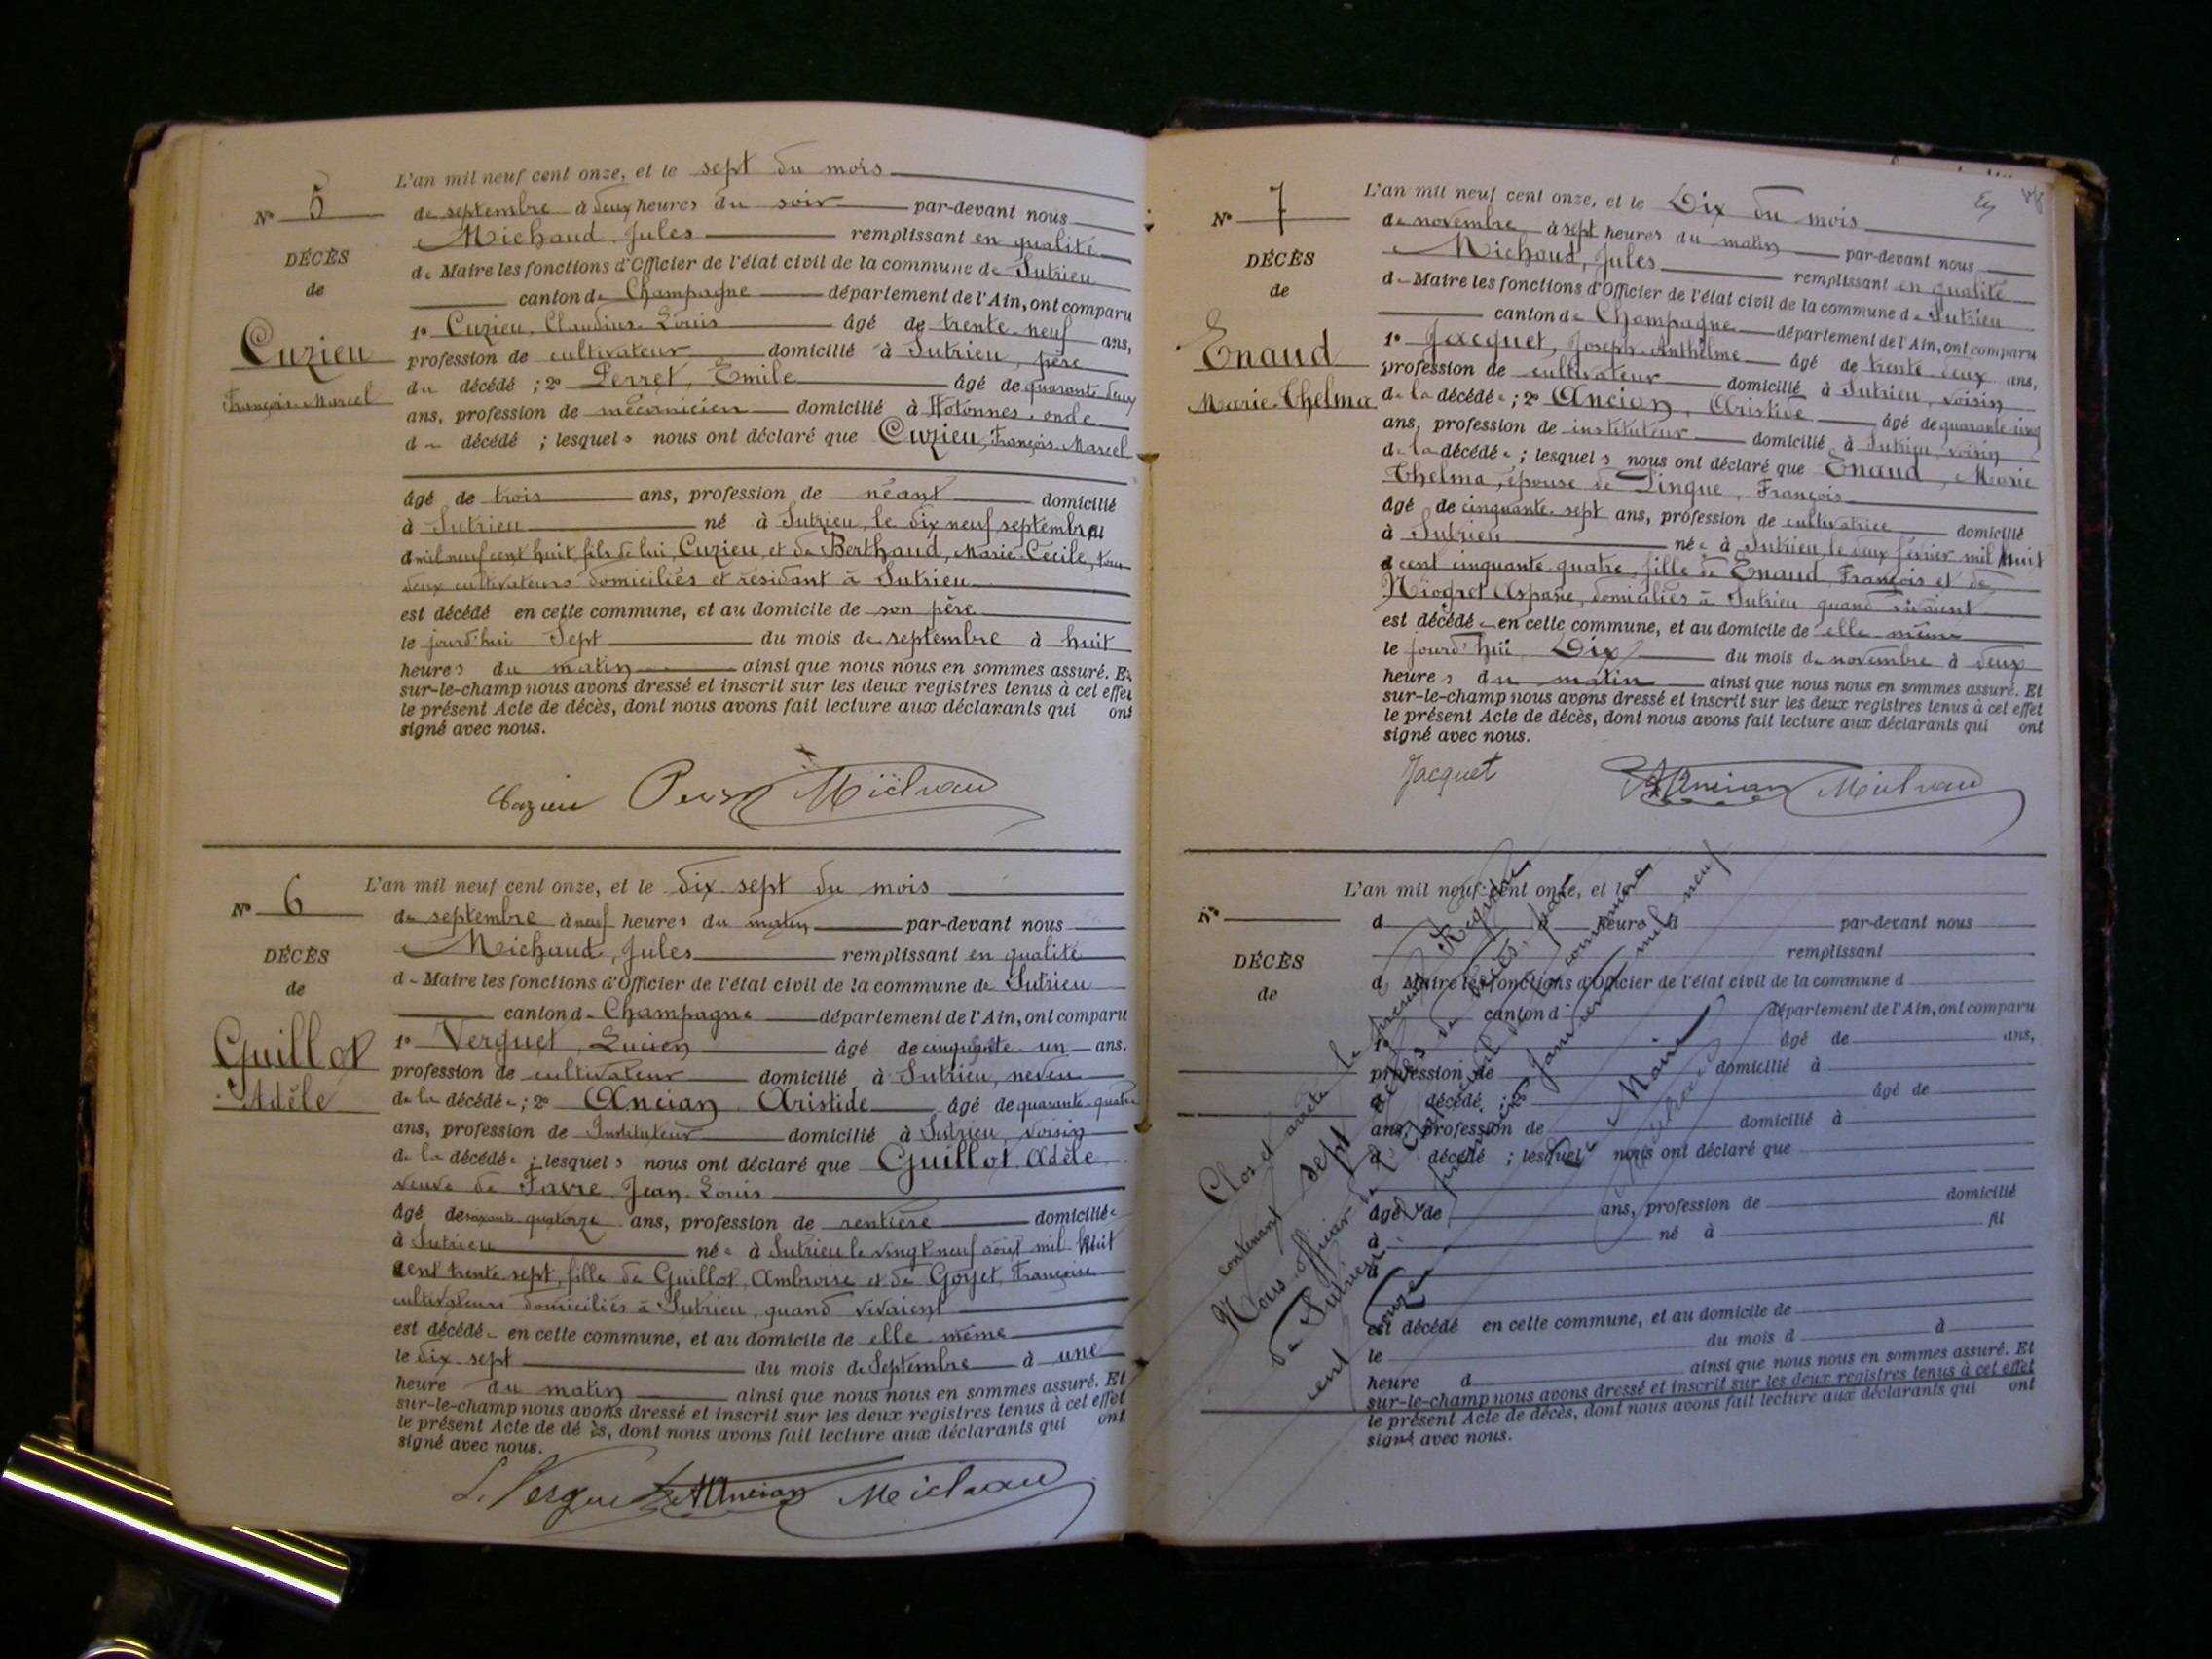 L'an mil neuf cent onze, et le sept du mois
N° 5
de septembre à deux heures du soir par-devant nous
Michaud, Jules remplissant en qualité
DÉCÈS
de Maire les fonctions d'Officier de l'état civil de la commune de Sutrieu
de
canton de Champagne département de l'Ain, ont comparu
1° Cuzieu, Claudius-Louis âgé de trente-neuf ans,
Cuzieu
profession de cultivateur domicilié à Sutrieu, père
François-Marcel
du décédé ; 2° Perret, Emile âgé de quarante-deux
ans, profession de mécanicien domicilié à Hotonnes, oncle
du décédé ; lesquels nous ont déclaré que Cuzieu, François-Marcel
âgé de trois ans, profession de néant domicilié
à Sutrieu né à Sutrieu, le dix neuf septembre
mil neuf cent huit, fils de lui, Cuzieu, et de Berthaud, Marie-Cécile, tous
deux cultivateurs domiciliés et résidant à Sutrieu
est décédé en cette commune, et au domicile de son père
le jourd'hui Sept du mois de septembre à huit
heures du matin ainsi que nous nous en sommes assuré. Et
sur-le-champ nous avons dressé et inscrit sur les deux registres tenus à cet effet
le présent Acte de décès, dont nous avons fait lecture aux déclarants qui ont
signé avec nous.
Cuzieu Perret Michaud
L'an mil neuf cent onze, et le dix-sept du mois
N° 6
de septembre à neuf heures du matin par-devant nous
Michaud, Jules remplissant en qualité
DÉCÈS
de Maire les fonctions d'Officier de l'état civil de la commune de Sutrieu
de
canton de Champagne département de l'Ain, ont comparu
1° Verguet, Lucien âgé de cinquante-un ans.
Guillot
profession de cultivateur domicilié à Sutrieu, neveu
Adèle
de la décédée ; 2° Ancian Aristide âgé de quarante-quatre
ans, profession de Instituteur domicilié à Sutrieu, voisin
de la décédée ; lesquels nous ont déclaré que Guillot Adèle,
veuve de Favre, Jean-Louis
âgé de soixante-quatorze ans, profession de rentière domiciliée
à Sutrieu née à Sutrieu le vingt neuf août mil huit
cent trente-sept, fille de Guillot, Ambroise et de Goyet, Françoise
cultivateurs domiciliés à Sutrieu, quand vivaient
est décédée en cette commune, et au domicile de elle-même
le dix-sept du mois de Septembre à une
heure du matin ainsi que nous nous en sommes assuré. Et
sur-le-champ nous avons dressé et inscrit sur les deux registres tenus à cet effet
le présent Acte de dé ès, dont nous avons fait lecture aux déclarants qui ont
signé avec nous.
L. Verguet A Ancian Michaud
L'an mil neuf cent onze, et le Dix du mois
N° 7
de novembre à sept heures du matin par-devant nous
Michaud, Jules remplissant en qualité
DÉCÈS
de Maire les fonctions d'Officier de l'état civil de la commune de Sutrieu
de
canton de Champagne département de l'Ain, ont comparu
1° Jacquet, Joseph-Anthelme âgé de trente-deux ans,
Enaud
profession de cultivateur domicilié à Sutrieu, voisin
Marie-Thelma
de la décédée ; 2° Ancian, Aristide âgé de quarante-cinq
ans, profession de instituteur domicilié à Sutrieu, voisin
de la décédée ; lesquels nous ont déclaré que Enaud, Marie
Thelma, épouse de Pingue, François
âgé de cinquante-sept ans, profession de cultivatrice domicilié
à Sutrieu née à Sutrieu, le deux février mil huit
cent cinquante-quatre, fille de Enaud, François et de
Niogret Aspasie, domiciliés à Sutrieu quand vivaient
est décédée en cette commune, et au domicile de elle-même
le jourd'hui Dix du mois de novembre à deux
heures du matin ainsi que nous nous en sommes assuré. Et
sur-le-champ nous avons dressé et inscrit sur les deux registres tenus à cet effet
le présent Acte de décès, dont nous avons fait lecture aux déclarants qui ont
signé avec nous.
Jacquet A Ancian Michaud
L'an mil neuf cent onze, et le
N°
d à heure d par-devant nous
remplissant
DÉCÈS
d Maire les fonctions d'Officier de l'état civil de la commune d
de
canton d département de l'Ain, ont comparu
1° âgé de ans,
profession de domicilié à
d décédé ; 2° âgé de
ans, profession de domicilié à
d décédé ; lesquel nous ont déclaré que
âgé de ans, profession de domicilié
à né à
d fil
est décédé en cette commune, et au domicile de
le du mois d à
heure d ainsi que nous nous en sommes assuré. Et
sur-le-champ nous avons dressé et inscrit sur les deux registres tenus à cet effet
le présent Acte de décès, dont nous avons fait lecture aux déclarants qui ont
signé avec nous.
Clos et arrêté le présent Registre
contenant sept actes de décès par
Nous officier de l'Etat civil de la commune
de Sutrieu, premier janvier mil neuf
cent douze
Le Maire
Michaud